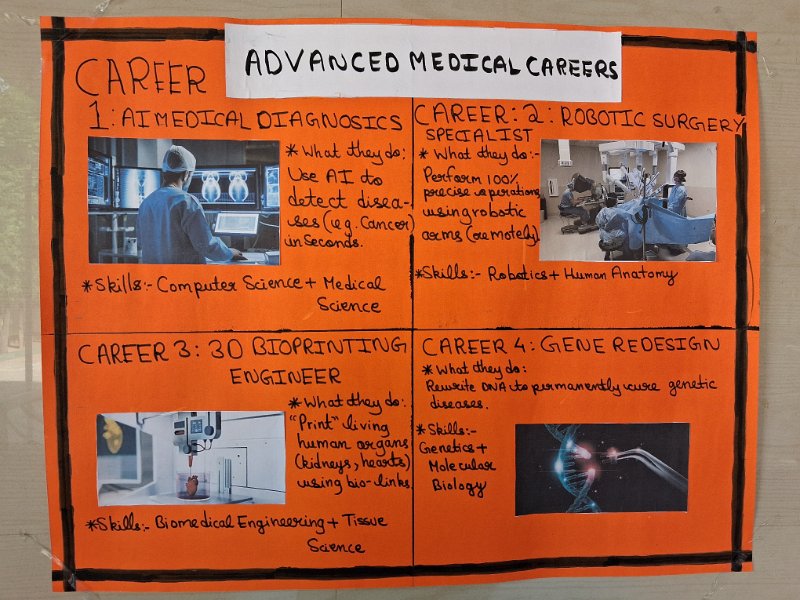 ADVANCED MEDICAL CAREERS
CAREER
1: AI MEDICAL DIAGNOSICS
* What they do:
Use AI to
detect disea-
ses (e.g. Cancer)
in Seconds.
* Skills:- Computer Science + Medical
Science
CAREER: 2: ROBOTIC SURGERY
SPECIALIST
* What they do:-
Perform 100%
precise operations
using robotic
arms (remotely)
* Skills:- Robotics + Human Anatomy
CAREER 3: 3D BIOPRINTING
ENGINEER
* What they do:
"Print" living
human organs
(kidneys, hearts)
using bio-links.
* Skills:- Biomedical Engineering + Tissue
Science
CAREER 4: GENE REDESIGN
* What they do:
Rewrite DNA to permanently cure genetic
diseases.
* Skills:-
Genetics +
Molecular
Biology